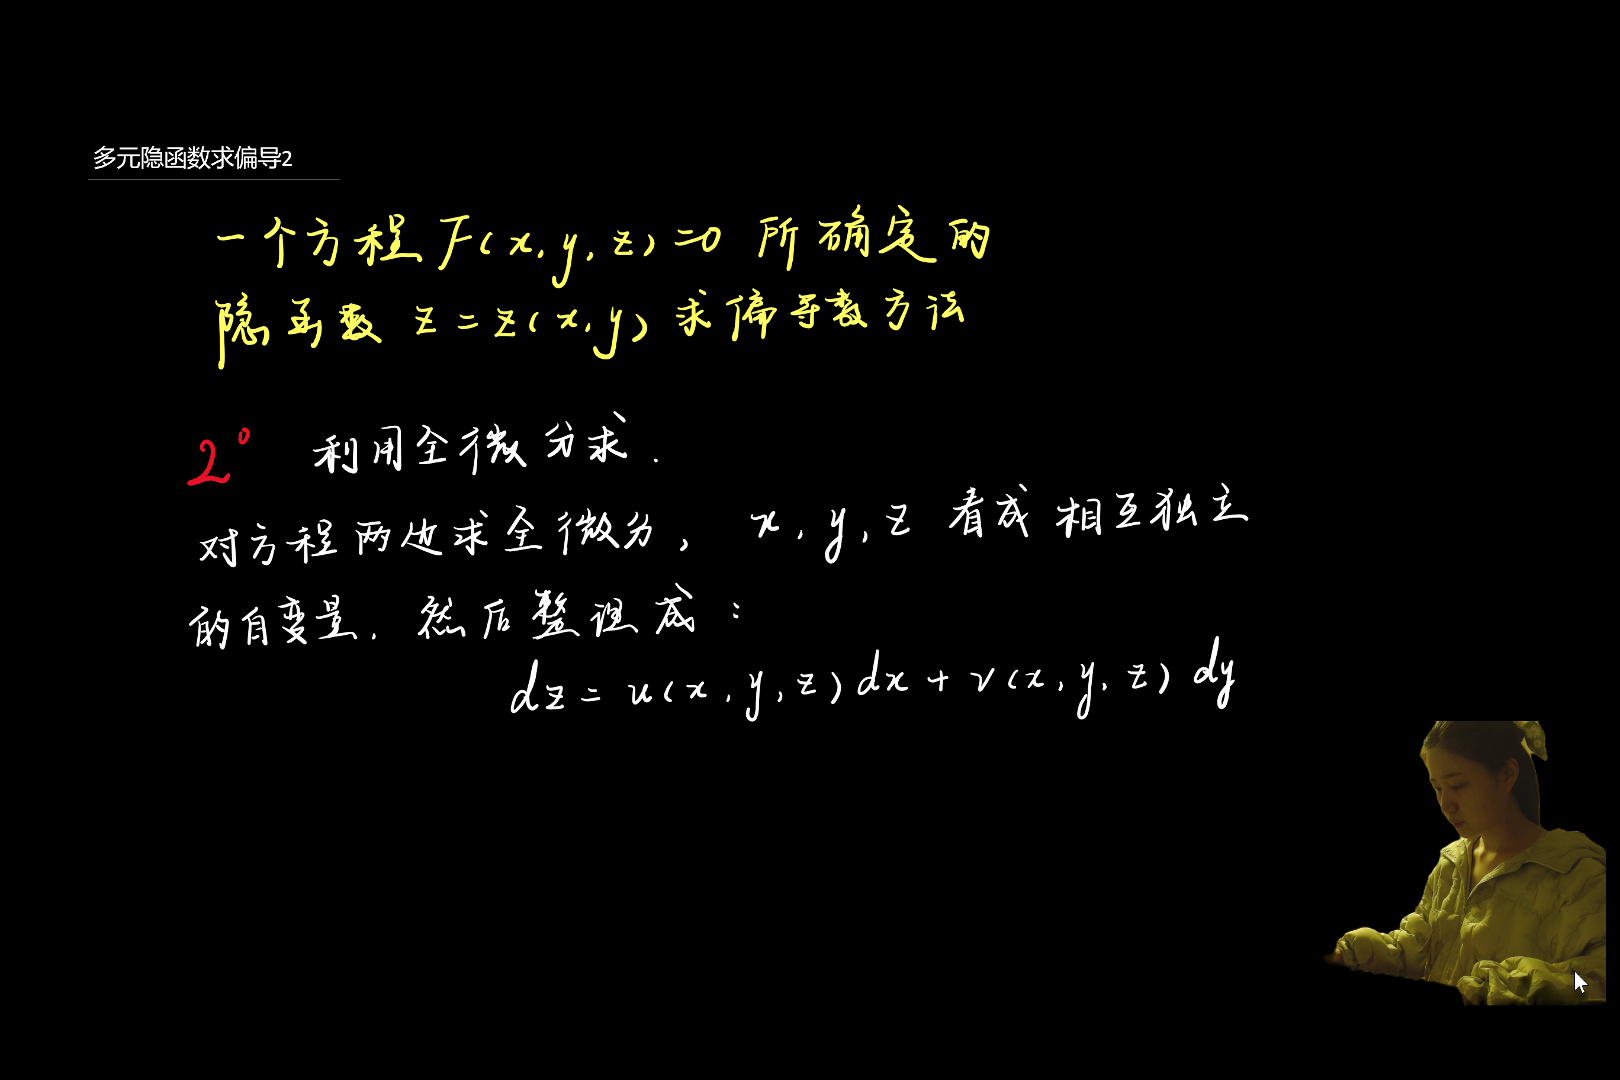 多元隐函数求偏导2
一个方程 F(x,y,z)=0 所确定的
隐函数 z=z(x,y) 求偏导数方法
2° 利用全微分求.
对方程两边求全微分, x,y,z 看成相互独立
的自变量. 然后整理成:
dz=u(x,y,z)dx+v(x,y,z)dy